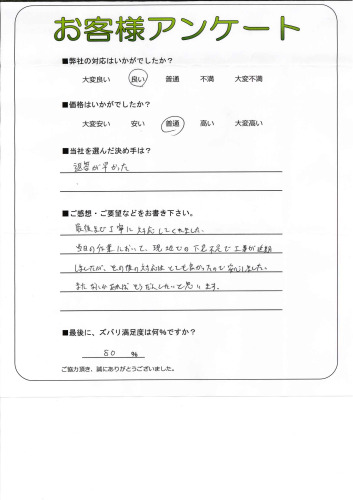 お客様アンケート
■弊社の対応はいかがでしたか?
大変良い 良い 普通 不満 大変不満
■価格はいかがでしたか?
大変安い 安い 普通 高い 大変高い
■当社を選んだ決め手は?
返答が早かった
■ご感想・ご要望などをお書き下さい。
最後まで丁寧に対応してくれました。
当日の作業において、現地での下見不足で工事が延期
しましたが、その後の対応はとても良かったので安心しました。
また なにかあれば そうだんしたいと思います。
■最後に、ズバリ満足度は何%ですか?
80 %
ご協力頂き、誠にありがとうございました。